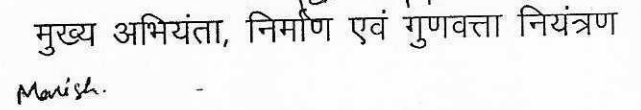 मुख्य अभियंता, निर्माण एवं गुणवत्ता नियंत्रण
Manish. -